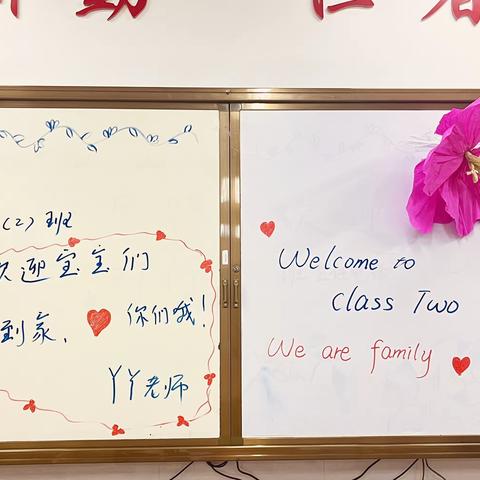 (2)班
欢迎宝宝们
到家,
你们哦!
丫丫老师
Welcome to
Class Two
We are family